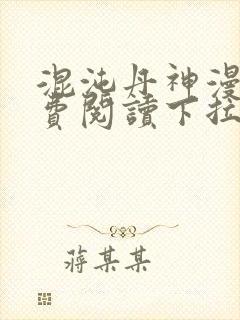 混沌丹神漫
費閱讀下拉
蔣某某